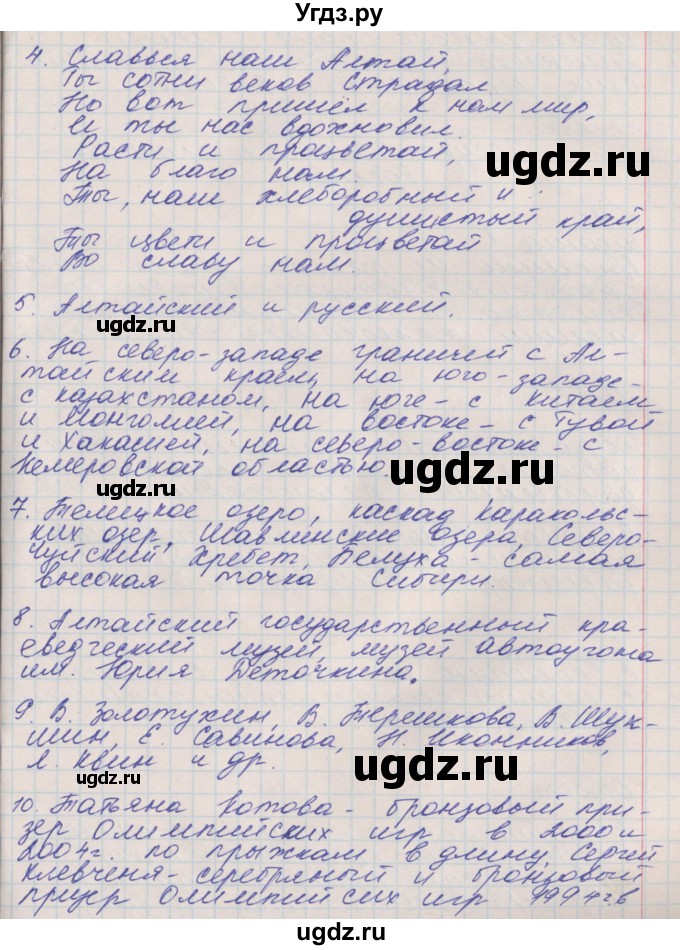 Угдз.ру
4. Славься наш Алтай,
Ты сотни веков страдал.
Но вот пришёл к нам мир,
И ты нас вдохновил.
Расти и процветай,
На благо нам.
Ты, наш хлеборобный и
душистый край,
Ты цвети и процветай
Во славу нам.
ugdz.ru
5. Алтайский и русский.
ugdz.ru
6. На северо-западе граничей с Ал-
тайским краем, на юго-западе-
с казахстаном, на юге - с китаем
и Монголией, на востоке - с Тувой
и Хакасией, на северо-востоке - с
Кемеровской областью.
ugdz.ru
7. Телецкое озеро, каскад Каракольс-
ких озер, Шавлинские озера, Северо-
Чуйский Хребет, Белуха - самая
высокая точка Сибири.
ugdz.ru
8. Алтайский государственный кра-
еведческий музей, музей Автоугона
им. Юрия Деточкина.
9. В. Золотухин, В. Терешкова, В. Шук-
шин, Е. Савинова, Н. Иконников,
Л. Квин и др.
ugdz.ru
ugdz.ru
10. Татьяна Котова - бронзовый при-
зер Олимпийских игр в 2000 и
2004г. по прыжкам в длину, Сергей
Клевченя - серебряный и бронзовый
призер Олимпийсих игр 1994г. в
ugdz.ru